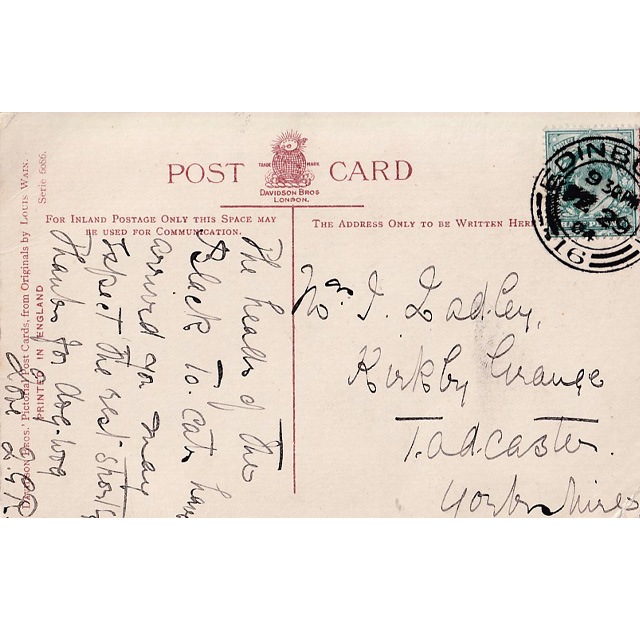 POST CARD
TRADE MARK
DAVIDSON BROS
LONDON.
FOR INLAND POSTAGE ONLY THIS SPACE MAY
BE USED FOR COMMUNICATION.
THE ADDRESS ONLY TO BE WRITTEN HERE
DAVIDSON BROS.' Pictorial Post Cards, from Originals by LOUIS WAIN.
Serie 6086.
PRINTED IN ENGLAND
EDINBU
9 30PM
29
04
16
The heads of the
Black To. cats have
arrived you may
expect the rest shortly
Thanks for dog-wog
Love
Mr J. Ladley,
Kirkby Grange
Tadcaster.
Yorkshire